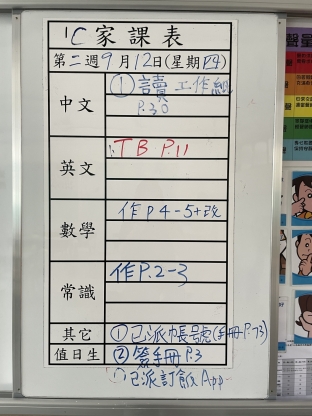 1C家課表
第二週9月12日(星期四)
中文 ①讀 工作紙
P.30
英文 TB P.11
數學 作P4-5+改
常識 作P.2-3
其它 ①已派帳號(手冊P.73)
值日生 ②簽手冊P.3
①已派訂飯App